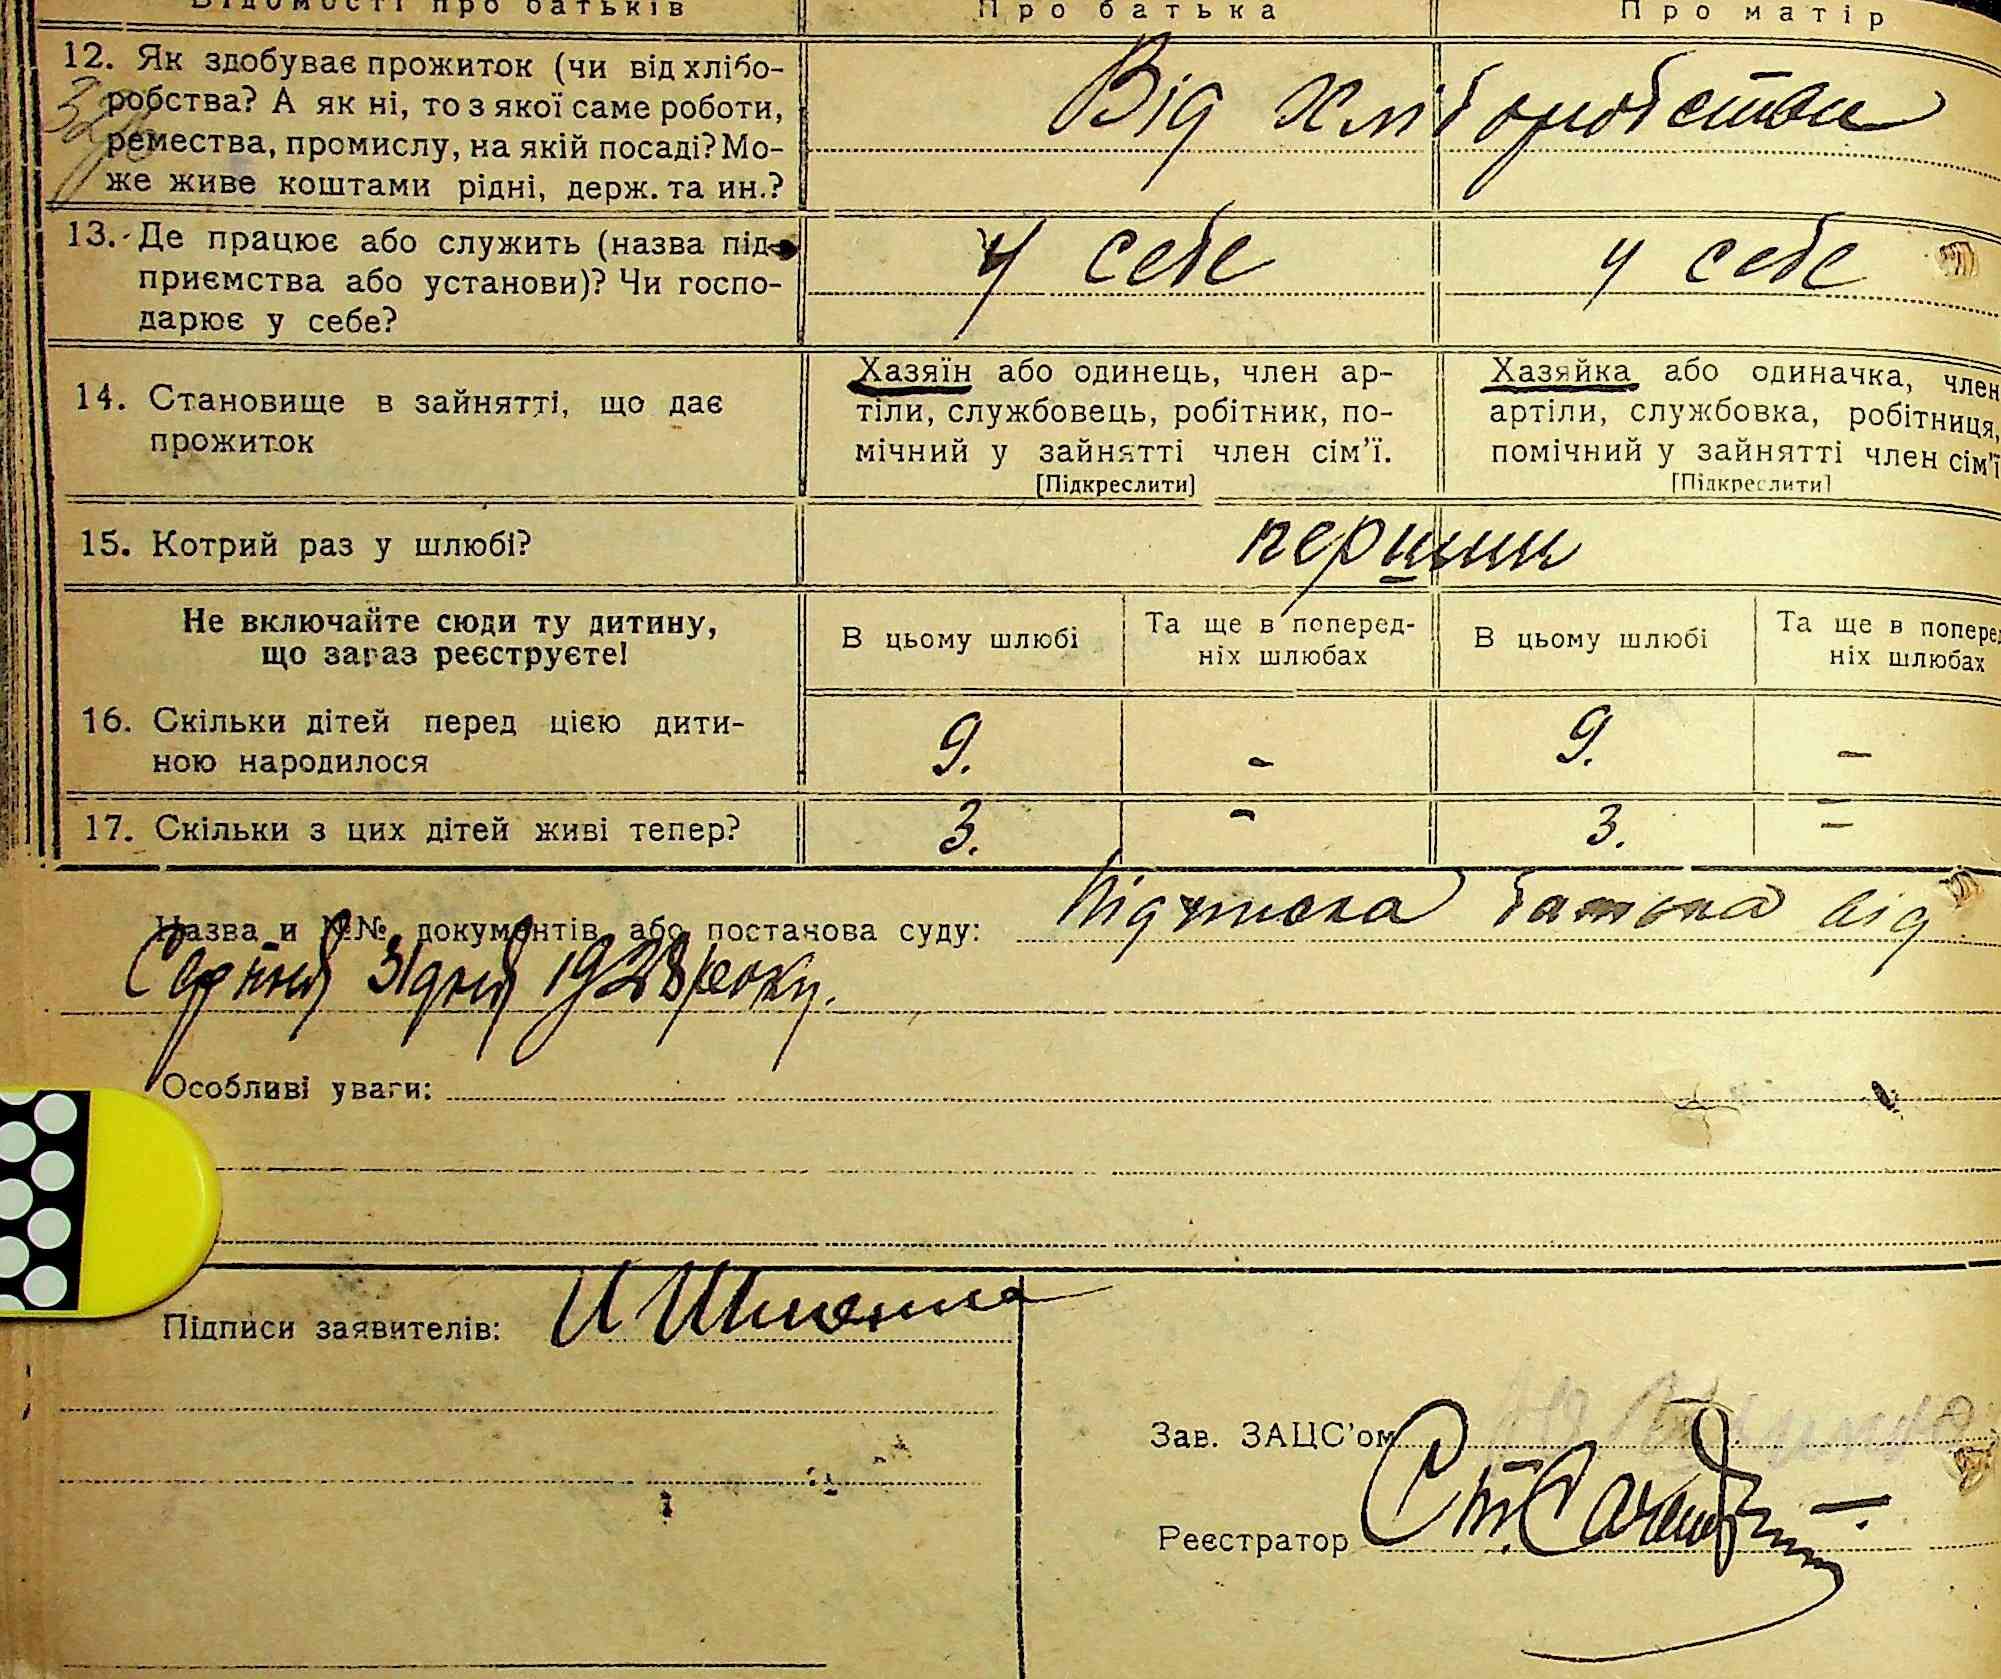 Відомості про батьків Про батька Про матір
12. Як здобуває прожиток (чи від хлібо-
робства? А як ні, то з якої саме роботи,
ремества, промислу, на якій посаді? Мо-
же живе коштами рідні, держ. та ин.?
Від хліборобства
13. Де працює або служить (назва під-
приємства або установи)? Чи госпо-
дарює у себе?
У себе у себе
14. Становище в зайнятті, що дає
прожиток
Хазяїн або одинець, член ар-
тіли, службовець, робітник, по-
мічний у зайнятті член сім'ї.
[Підкреслити]
Хазяйка або одиначка, член
артіли, службовка, робітниця,
помічний у зайнятті член сім'ї
[Підкреслити]
15. Котрий раз у шлюбі?
першии
Не включайте сюди ту дитину,
що зараз реєструєте!
В цьому шлюбі
Та ще в поперед-
ніх шлюбах
В цьому шлюбі
Та ще в поперед
ніх шлюбах
16. Скільки дітей перед цією дити-
ною народилося
9. - 9. -
17. Скільки з цих дітей живі тепер?
3. - 3. -
Назва и №№ документів або постанова суду: Підписка батька від
Серпня 31 дня 1928 року.
Особливі уваги:
Підписи заявителів: И
Зав. ЗАЦС'ом
Реєстратор